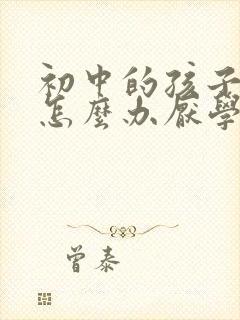 初中的孩子
怎麼办厭學
曾泰